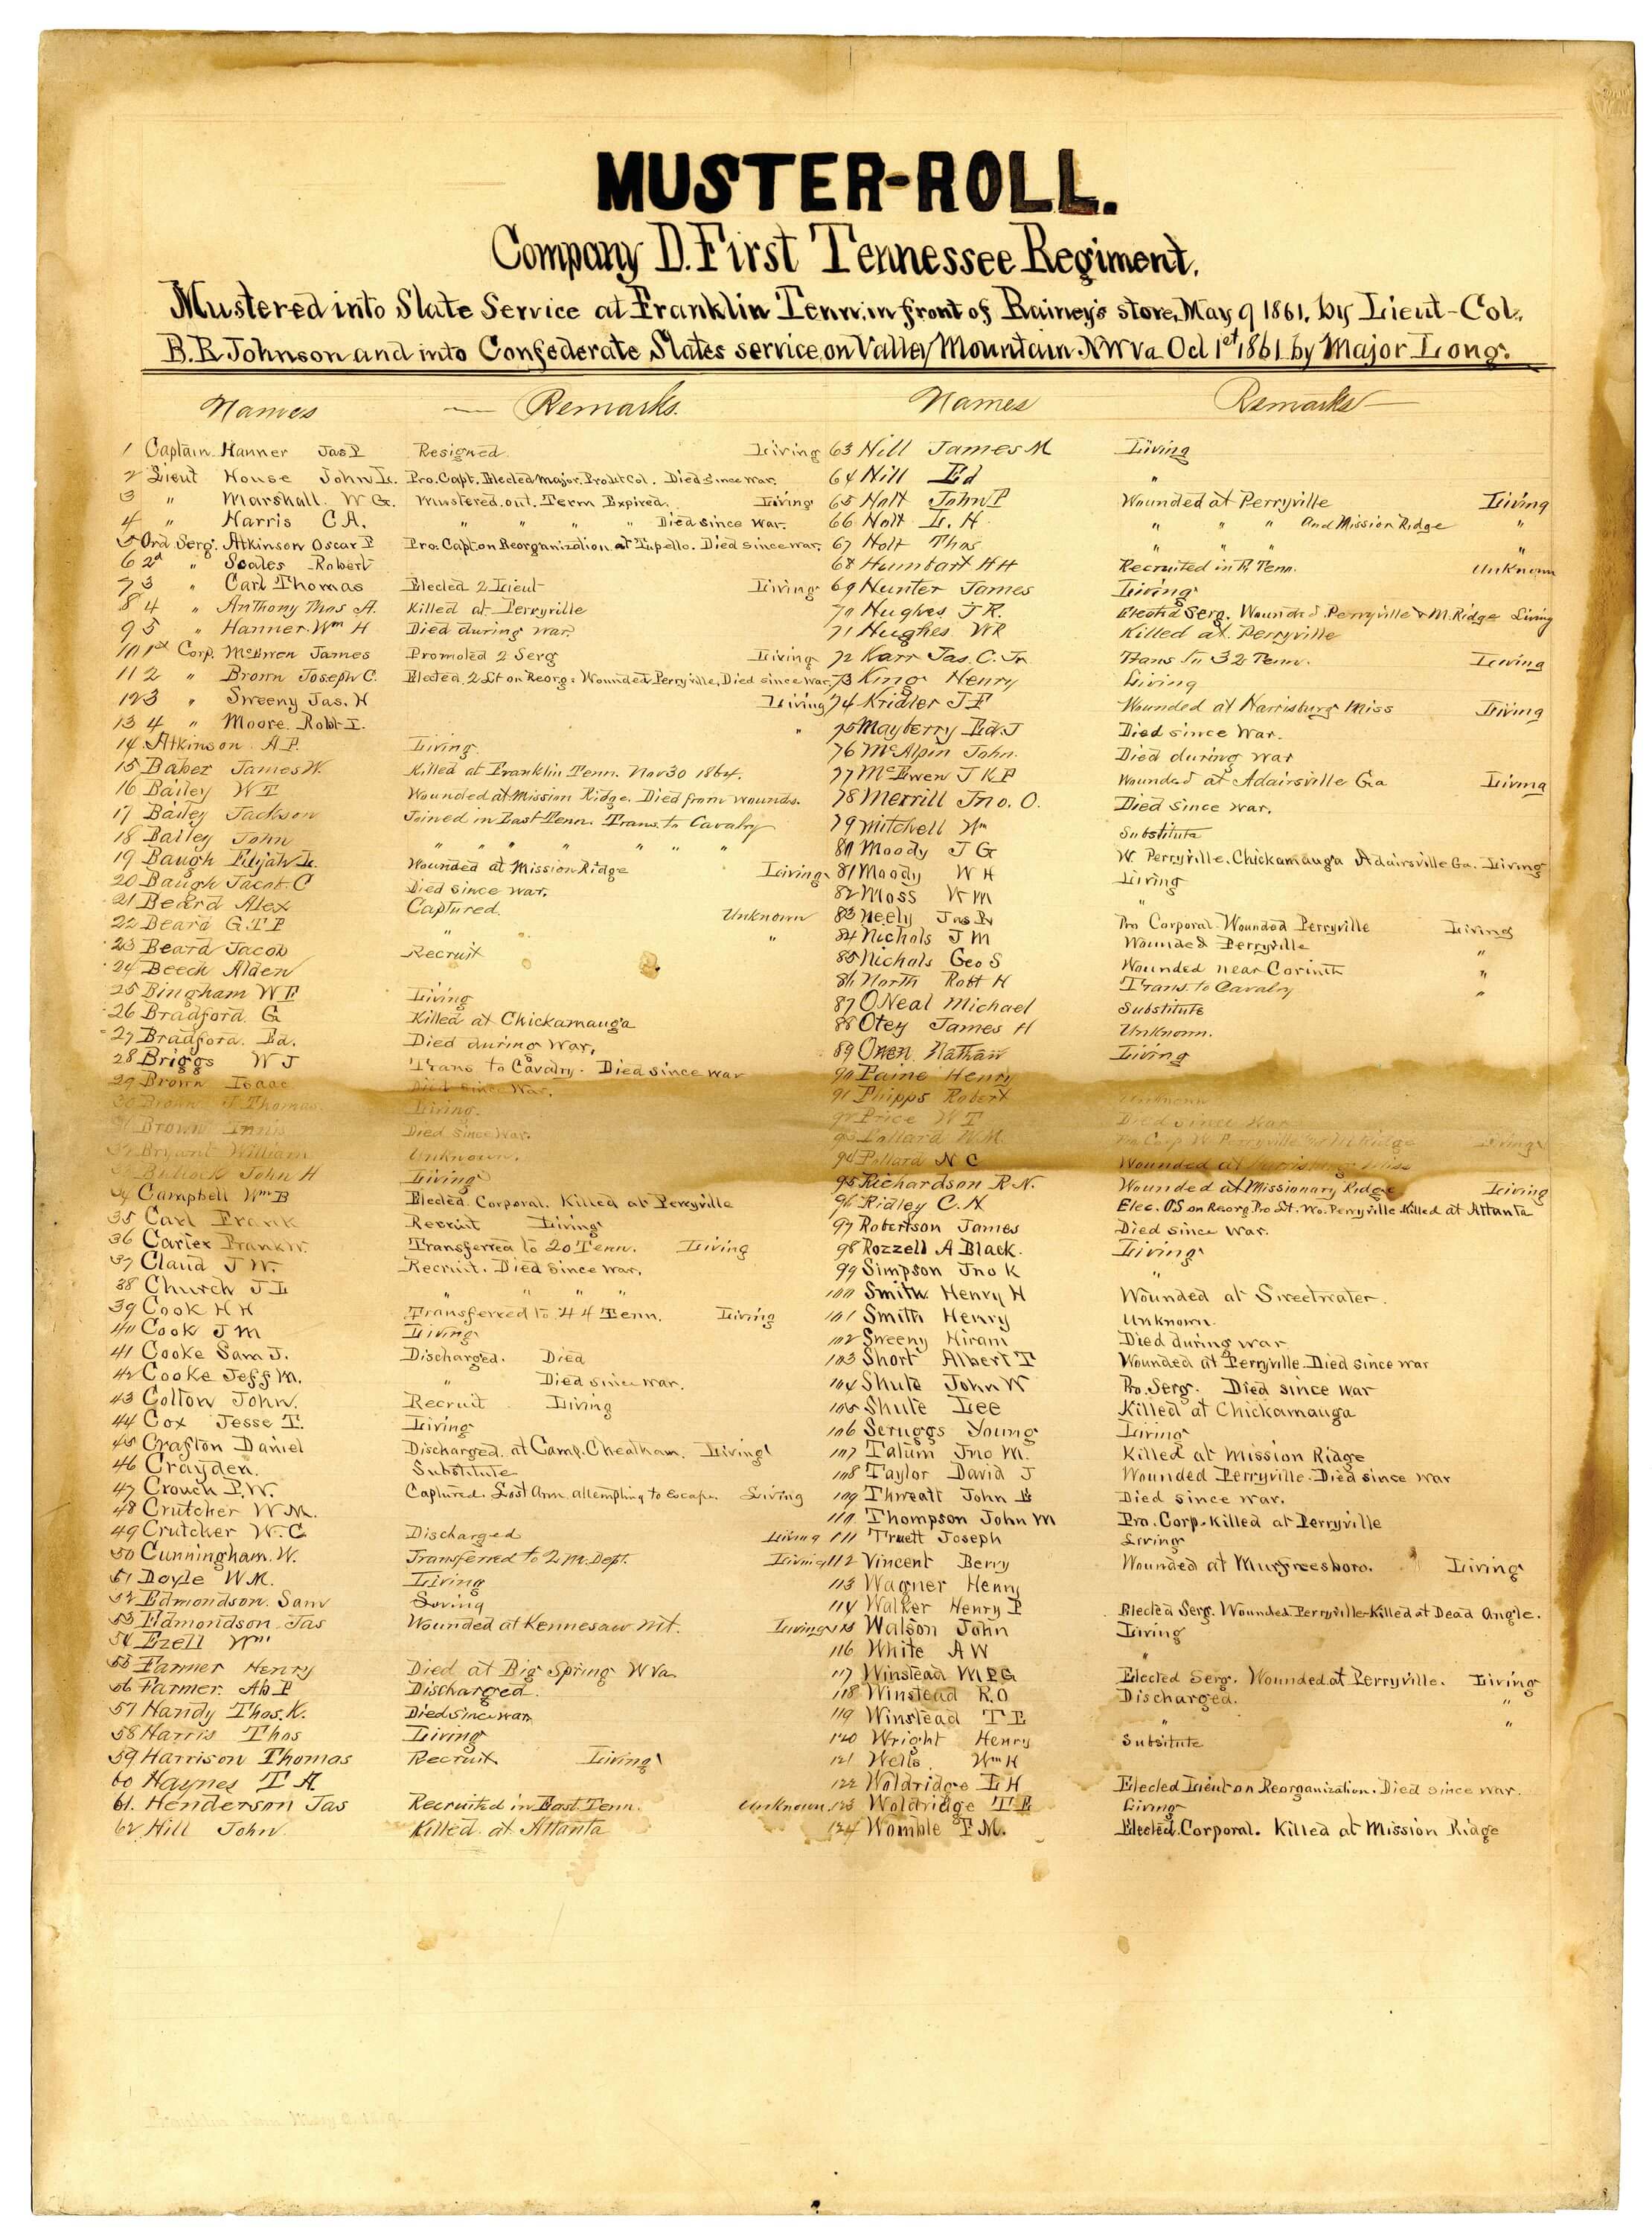 MUSTER-ROLL.
Company D. First Tennessee Regiment.
Mustered into State Service at Franklin Tenn, in front of Rainey's store, May 9 1861, by Lieut-Col.
B.R. Johnson and into Confederate States service, on Valley Mountain N W Va Oct 1st 1861 by Major Long.
Names — Remarks.
1 Captain Hanner Jas P Resigned Living
2 Lieut House John L. Pro. Capt. Elected Major. Pro Lt Col. Died since war.
3 " Marshall W G. Mustered out. Term Expired. Living
4 " Harris C A. " " " " Died since war.
5 Ord Serg. Atkinson Oscar P Pro. Capt on Reorganization at Tupello. Died since war.
6 2d " Scales Robert
7 3 " Carl Thomas Elected 2 Lieut Living
8 4 " Anthony Thos A. Killed at Perryville
9 5 " Hanner Wm H Died during war.
10 1st Corp. McEwen James Promoted 2 Serg Living
11 2 " Brown Joseph C. Elected 2 Lt on Reorg. Wounded Perryville, Died since war.
12 3 " Sweeny Jas. H Living
13 4 " Moore Robt I. "
14 Atkinson A P. Living
15 Baber James W. Killed at Franklin Tenn. Nov 30 1864.
16 Bailey W T Wounded at Mission Ridge. Died from wounds.
17 Bailey Jackson Joined in East Tenn. Trans. to Cavalry
18 Bailey John " " " " " " "
19 Baugh Elijah L. Wounded at Mission Ridge Living
20 Baugh Jacob C Died since war.
21 Beard Alex Captured. Unknown
22 Beard G T P " "
23 Beard Jacob Recruit
24 Beech Alden
25 Bingham W F Living
26 Bradford G Killed at Chickamauga
27 Bradford Ed. Died during War.
28 Briggs W J Trans to Cavalry. Died since war
29 Brown Isaac Died since War.
30 Brown J Thomas. Living.
31 Brown Innis Died since War.
32 Bryant William Unknown.
33 Bullock John H Living
34 Campbell Wm B Elected Corporal. Killed at Perryville
35 Carl Frank Recruit Living
36 Carter Frank W. Transferred to 20 Tenn. Living
37 Claud J W. Recruit. Died since war.
38 Church J L " " " "
39 Cook H H Transferred to 44 Tenn. Living
40 Cook J M Living
41 Cooke Sam J. Discharged. Died
42 Cooke Jeff M. " Died since war.
43 Colton John. Recruit Living
44 Cox Jesse T. Living
45 Crafton Daniel Discharged at Camp Cheatham. Living
46 Crayden. Substitute
47 Crouch P. W. Captured. Lost Arm attempting to escape Living
48 Crutcher W M.
49 Crutcher W. C Discharged Living
50 Cunningham. W. Transferred to 2 M. Dept. Living
51 Doyle W M. Living
52 Edmondson. Sam Living
53 Edmondson Jas Wounded at Kennesaw Mt. Living
54 Ezell Wm
55 Farmer Henry Died at Big Spring W Va.
56 Farmer. Ab P Discharged.
57 Handy Thos. K. Died since war
58 Harris Thos Living
59 Harrison Thomas Recruit Living
60 Haynes T A
61. Henderson Jas Recruited in East Tenn. Unknown
62 Hill John Killed at Atlanta
Names Remarks
63 Hill James M Living
64 Hill Ed "
65 Holt John P Wounded at Perryville Living
66 Holt L. H. " " " and Mission Ridge "
67 Holt Thos " " "
68 Humbart H H Recruited in E. Tenn. Unknown
69 Hunter James Living
70 Hughes J R. Elected Serg. Wounded Perryville & M. Ridge Living
71 Hughes W R Killed at Perryville
72 Karr Jas. C. Jr Trans to 32 Tenn. Living
73 King Henry Living
74 Kridler J F Wounded at Harrisburg Miss Living
75 Mayberry Ed. J Died since War.
76 McAlpin John. Died during war
77 McEwen J K P Wounded at Adairsville Ga Living
78 Merrill Jno. O. Died since war.
79 Mitchell Wm Substitute
80 Moody J G W. Perryville. Chickamauga Adairsville Ga. Living
81 Moody W H Living
82 Moss W M "
83 Neely Jas R Pro Corporal. Wounded Perryville Living
84 Nichols J M Wounded Perryville "
85 Nichols Geo S Wounded near Corinth "
86 North Robt H Trans. to Cavalry "
87 O'Neal Michael Substitute
88 Otey James H Unknown.
89 Owen Nathan Living
90 Paine Henry
91 Phipps Robert Unknown
92 Price W T Died since War
93 Pollard W. M. Pro Corp W. Perryville and M Ridge Living
94 Pollard N C Wounded at Harrisburg Miss
95 Richardson R. N. Wounded at Missionary Ridge Living
96 Ridley C. H Elec. O S on Reorg Pro Lt. Wo. Perryville Killed at Atlanta
97 Robertson James Died since war.
98 Rozzell A Black. Living
99 Simpson Jno K "
100 Smith Henry H Wounded at Sweetwater.
101 Smith Henry Unknown.
102 Sweeny Hiram Died during war
103 Short Albert T Wounded at Perryville Died since war
104 Shute John W Pro. Serg. Died since war
105 Shute Lee Killed at Chickamauga
106 Scruggs Young Living
107 Tatum Jno M. Killed at Mission Ridge
108 Taylor David J Wounded Perryville. Died since war
109 Threatt John B Died since war.
110 Thompson John M Pro. Corp. Killed at Perryville
111 Truett Joseph Living
112 Vincent Berry Wounded at Murfreesboro. Living
113 Wagner Henry
114 Walker Henry P Elected Serg. Wounded Perryville-Killed at Dead Angle.
115 Watson John Living
116 White A W "
117 Winstead M P G Elected Serg. Wounded at Perryville. Living
118 Winstead R. O Discharged. "
119 Winstead T E " "
120 Wright Henry Subsitute
121 Wells Wm H
122 Woldridge L H Elected Lieut on Reorganization. Died since war.
123 Woldridge T E Living
124 Womble F M. Elected Corporal. Killed at Mission Ridge